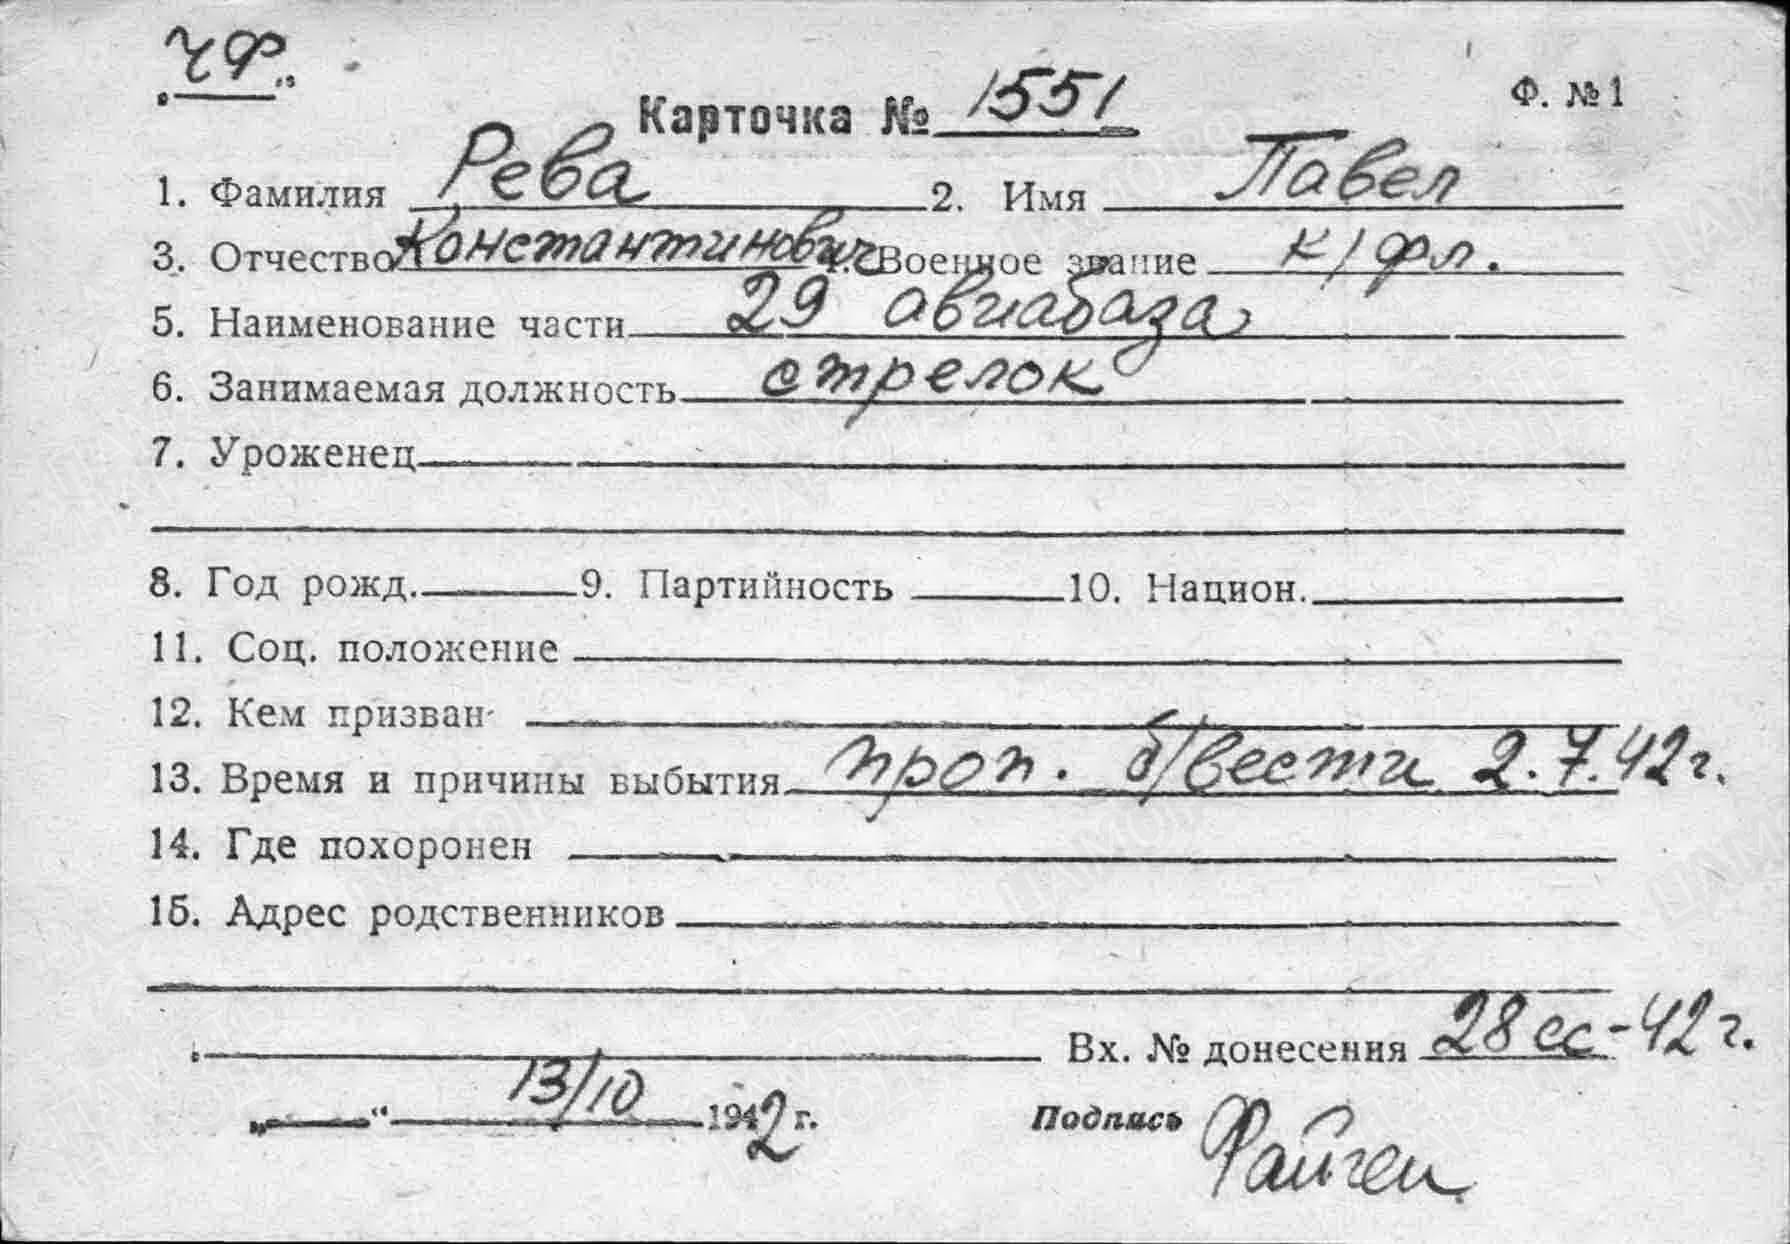 ЧФ.
Карточка № 1551 Ф. № 1
1. Фамилия Рева 2. Имя Павел
3. Отчество Константинович 4. Военное звание к/фл.
5. Наименование части 29 авиабаза
6. Занимаемая должность стрелок
7. Уроженец
8. Год рожд. 9. Партийность 10. Национ.
11. Соц. положение
12. Кем призван
13. Время и причины выбытия проп. б/вести 2.7.42г.
14. Где похоронен
15. Адрес родственников
Вх. № донесения 28 сс-42 г.
„ “ 13/10 1942 г. Подпись